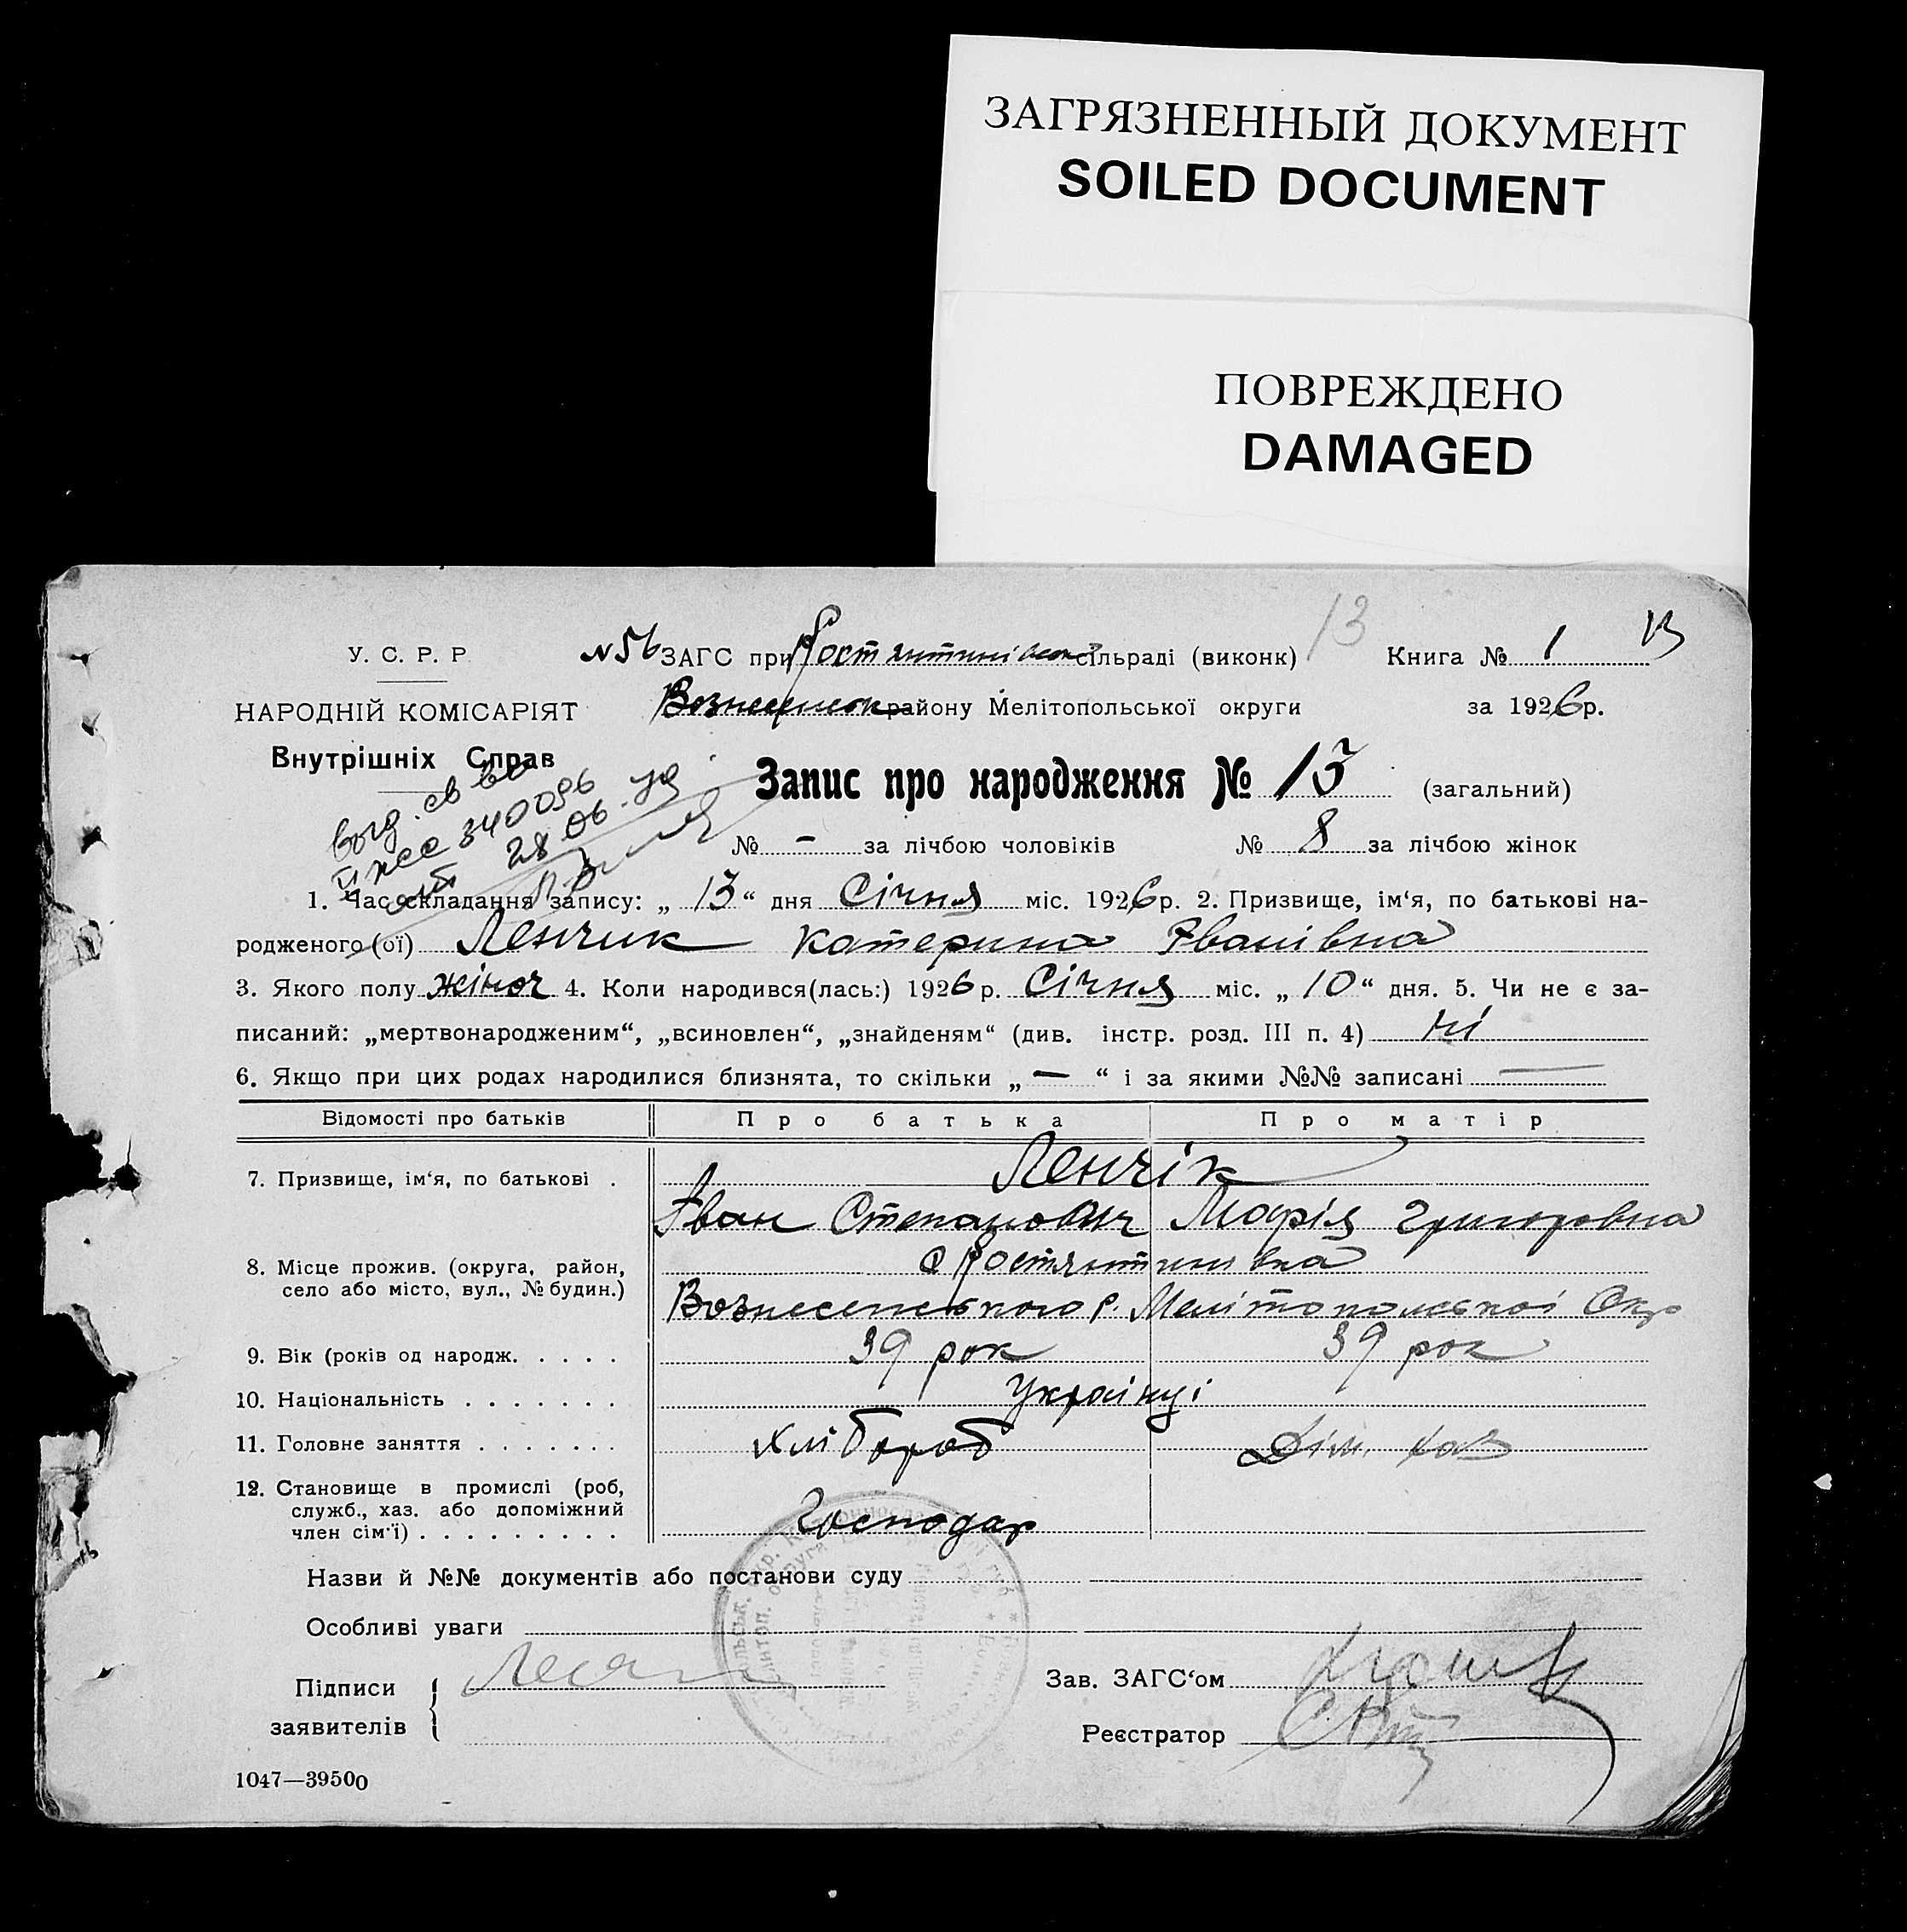 ЗАГРЯЗНЕННЫЙ ДОКУМЕНТ
SOILED DOCUMENT
ПОВРЕЖДЕНО
DAMAGED
13
13
У. С. Р. Р
№ 56 ЗАГС при сільраді (виконк) Книга № 1
НАРОДНІЙ КОМІСАРІЯТ
Вознесенськ району Мелітопольської округи за 1926 р.
Внутрішніх Справ
Запис про народження № 13 (загальний)
выд. св во
340096
28 06
№ - за лічбою чоловіків № 8 за лічбою жінок
1. Час складання запису: „ 13 “ дня Січня міс. 1926 р. 2. Призвище, ім‘я, по батькові на-
родженого (ої) Ленчик Катерина Іванівна
3. Якого полу жіноч 4. Коли народився(лась:) 1926 р. Січня міс. „ 10 “ дня. 5. Чи не є за-
писаний: „мертвонародженим“, „всиновлен“, „знайденям“ (див. інстр. розд. III п. 4) ні
6. Якщо при цих родах народилися близнята, то скільки „ — “ і за якими №№ записані —
Відомості про батьків Про батька Про матір
7. Призвище, ім‘я, по батькові . Ленчік
Іван Степанович Марія Григоровна
8. Місце прожив. (округа, район,
село або місто, вул., № будин.)
Вознесенського р. Мелітопольської Окр
9. Вік (років од народж. . . . . 39 рок 39 рок
10. Національність . . . . . . . Українці
11. Головне заняття . . . . . . . Хлібороб Дім. хаз
12. Становище в промислі (роб,
служб., хаз. або допоміжний
член сім‘ї) . . . . . . . . . Господар
Назви й №№ документів або постанови суду
Особливі уваги
Підписи
заявителів
Зав. ЗАГС‘ом
Реєстратор
1047—39500